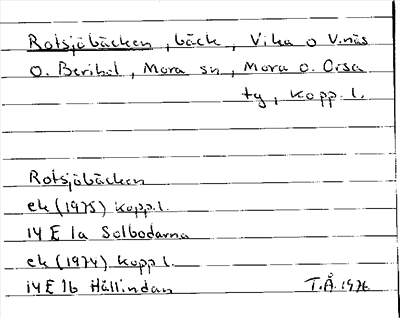 Rotsjöbäcken, bäck, Vika o V.näs
o. Berihol, Mora sn, Mora o. Orsa
tg, Kopp. l.
Rotsjöbäcken
ek (1975) Kopp.l.
14 E 1a Solbodarna
ek (1974) Kopp l.
14E 1b Hållindan
T.Å. 1976